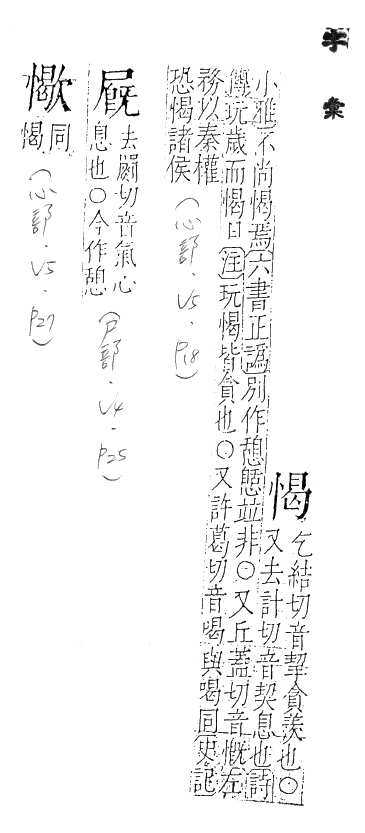 字彙
愒
乞結切音挈貪羨也〇
又去計切音契息也詩
小雅不尚愒焉六書正譌別作憩憇並非〇又丘蓋切音慨左
傳玩歲而愒日注玩愒皆貪也〇又許葛切音喝與喝同史記
務以秦權
恐愒諸侯
(心部.V5.P18)
㞒
去罽切音氣心
息也〇今作憩
(尸部.V4.P25)
憿同
愒
(心部.V5.P27)